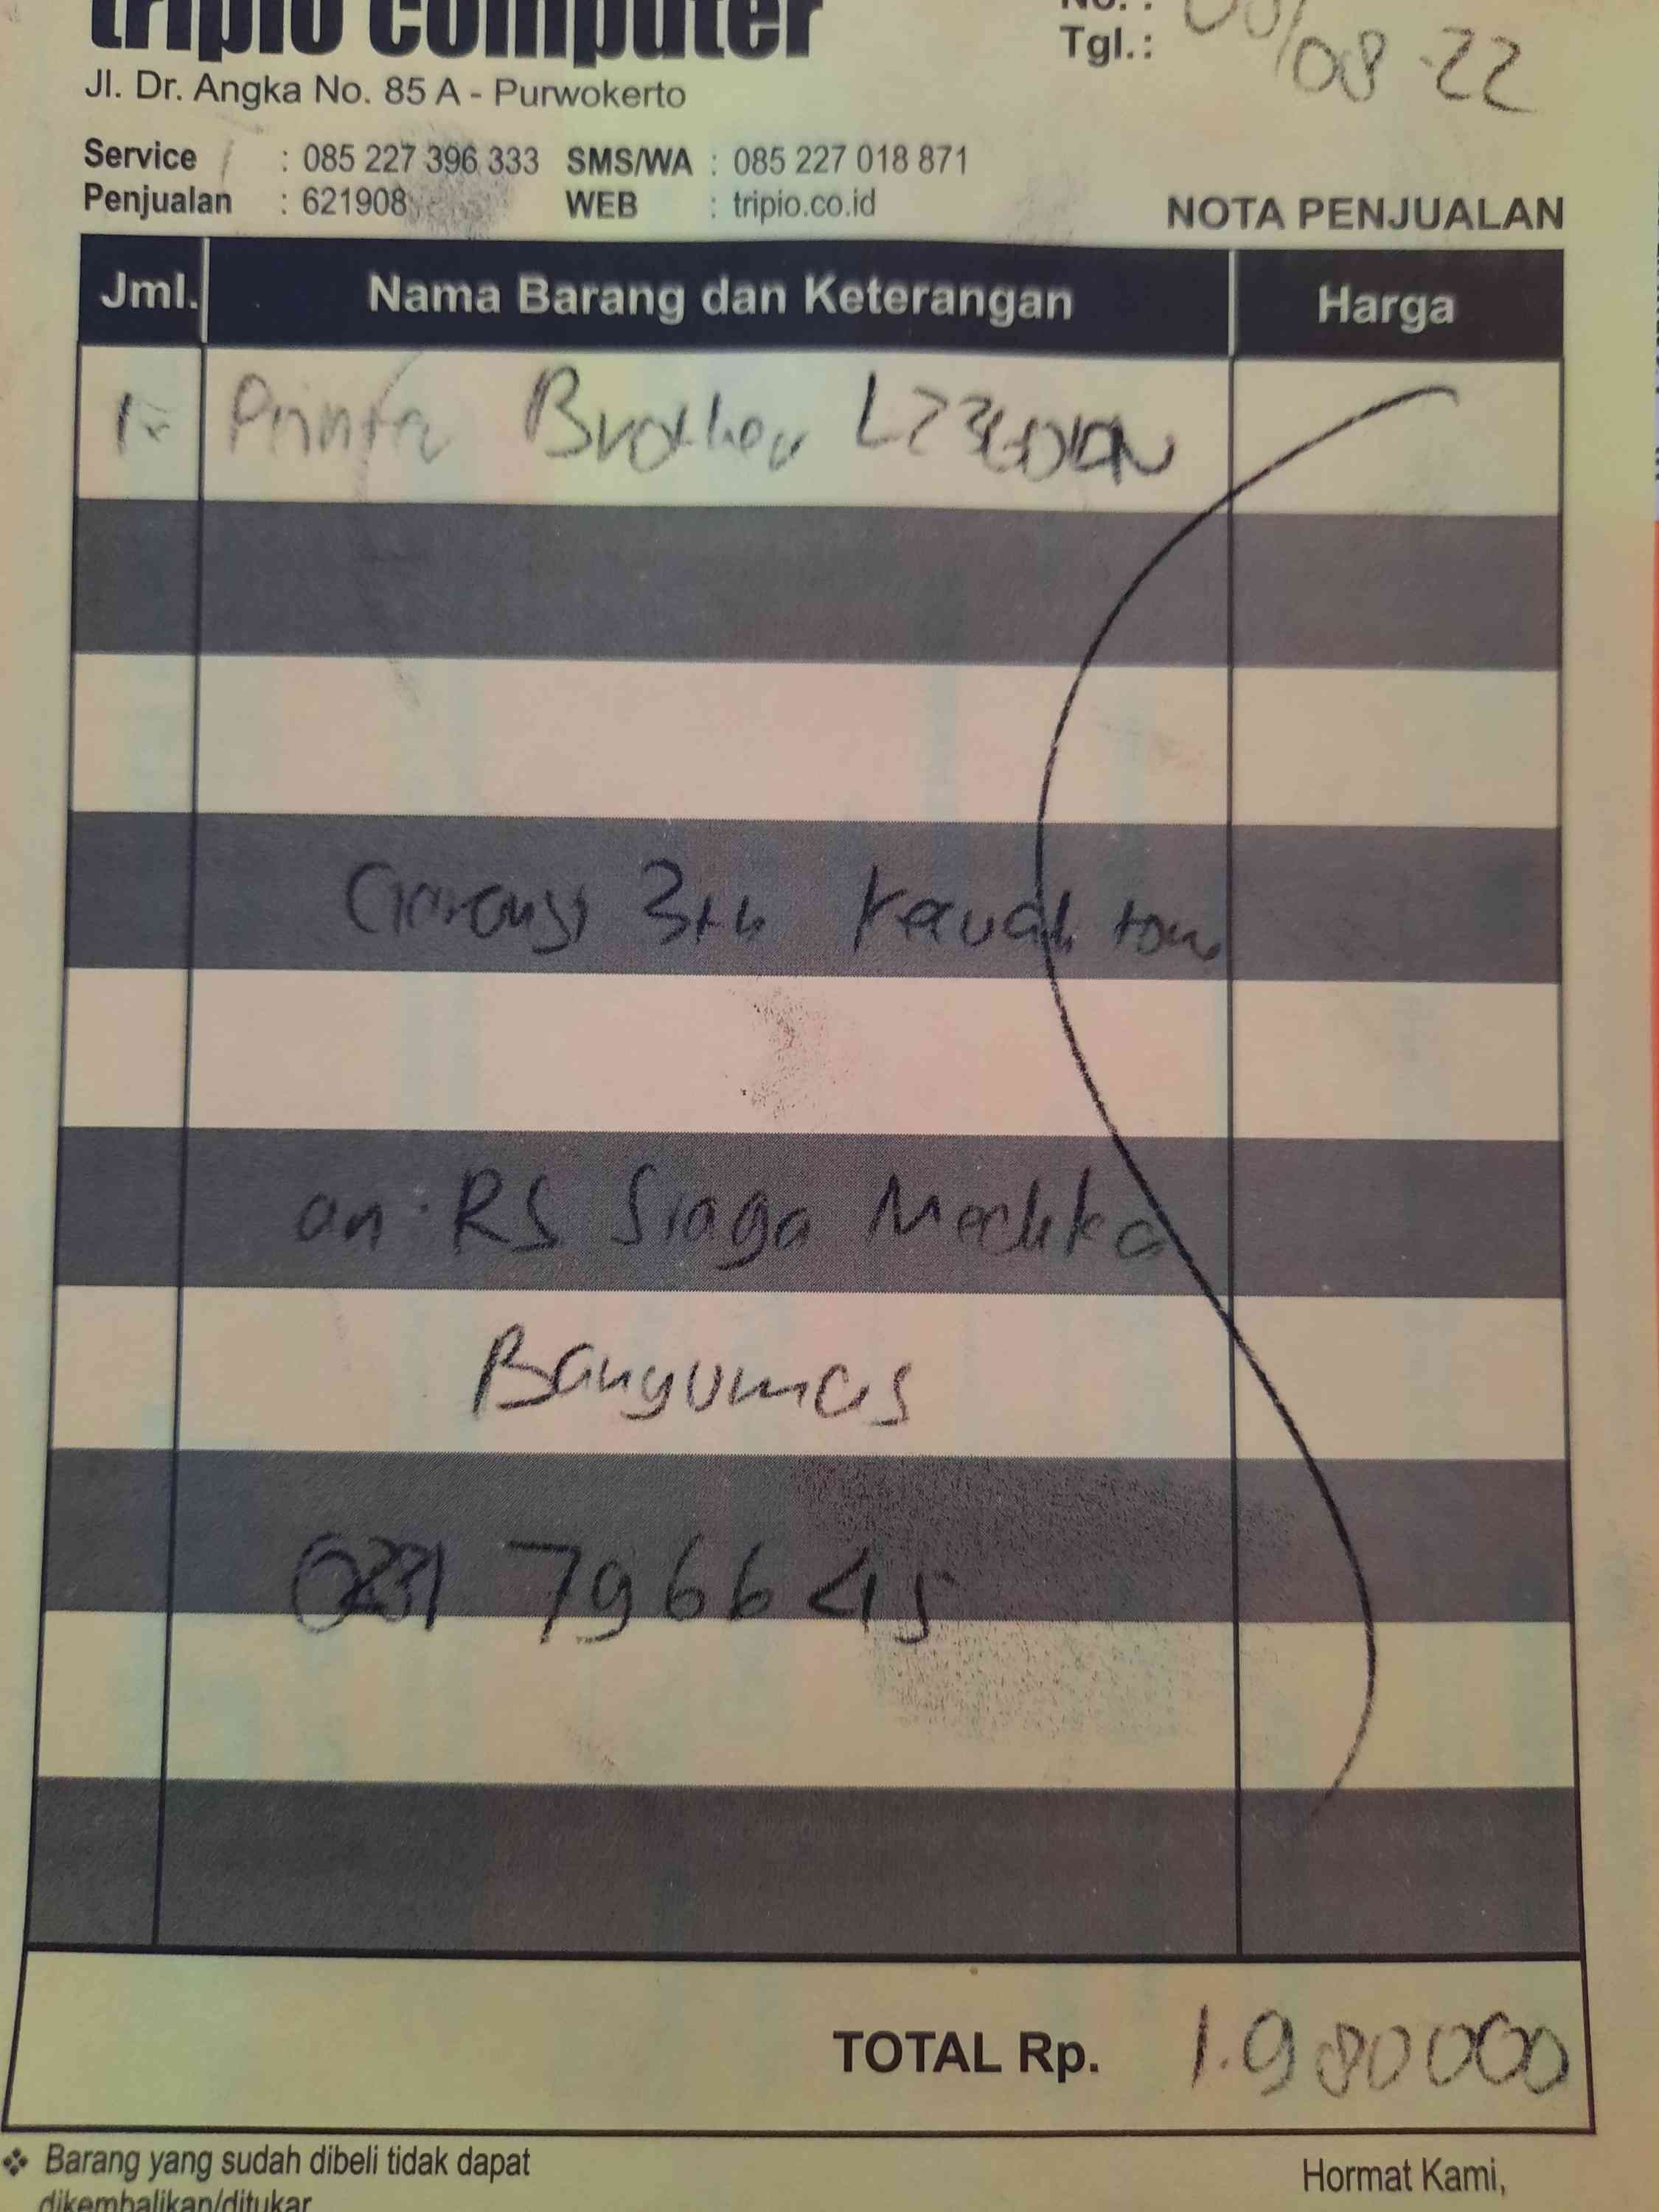 tripio computer
No. :
Tgl.: /08-22
Jl. Dr. Angka No. 85 A - Purwokerto
Service : 085 227 396 333 SMS/WA : 085 227 018 871
Penjualan : 621908 WEB : tripio.co.id
NOTA PENJUALAN
Jml. Nama Barang dan Keterangan Harga
1x Printer Brother L2360DN
Garansi 3th
an. RS Siaga Medika
Banyumas
0281 7966645
TOTAL Rp. 1.980000
❖ Barang yang sudah dibeli tidak dapat
dikembalikan/ditukar
Hormat Kami,